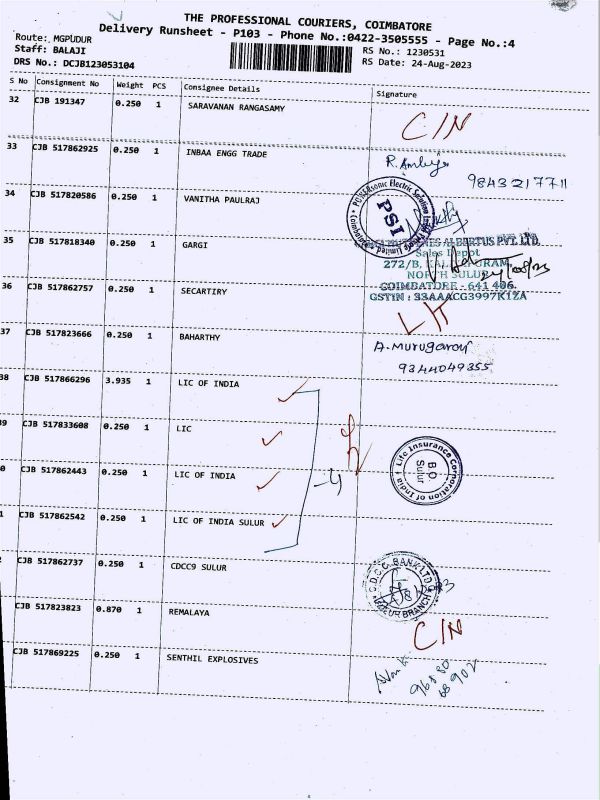 THE PROFESSIONAL COURIERS, COIMBATORE
Delivery Runsheet - P103 - Phone No.:0422-3505555 - Page No.:4
Route: MGPUDUR
RS No.: 1230531
Staff: BALAJI
RS Date: 24-Aug-2023
DRS No.: DCJB123053104
S No Consignment No Weight PCS Consignee Details Signature
32 CJB 191347 0.250 1 SARAVANAN RANGASAMY C/N
33 CJB 517862925 0.250 1 INBAA ENGG TRADE
9843217711
34 CJB 517820586 0.250 1 VANITHA PAULRAJ
PSI
35 CJB 517818340 0.250 1 GARGI
ALBERTUS PVT. LTD.
Sales Depot
272/B,
NORTH SULUR
COIMBATORE - 641 406.
GSTIN : 33AAACG3997K1ZA
36 CJB 517862757 0.250 1 SECARTIRY
37 CJB 517823666 0.250 1 BAHARTHY
9344049355
38 CJB 517866296 3.935 1 LIC OF INDIA
9 CJB 517833608 0.250 1 LIC
0 CJB 517862443 0.250 1 LIC OF INDIA
Life Insurance Corporation of India
B.O.
Sulur
1 CJB 517862542 0.250 1 LIC OF INDIA SULUR
CJB 517862737 0.250 1 CDCC9 SULUR
C.D.C.C. BANK LTD
SULUR BRANCH
CJB 517823823 0.870 1 REMALAYA C/N
CJB 517869225 0.250 1 SENTHIL EXPLOSIVES
96880
68902